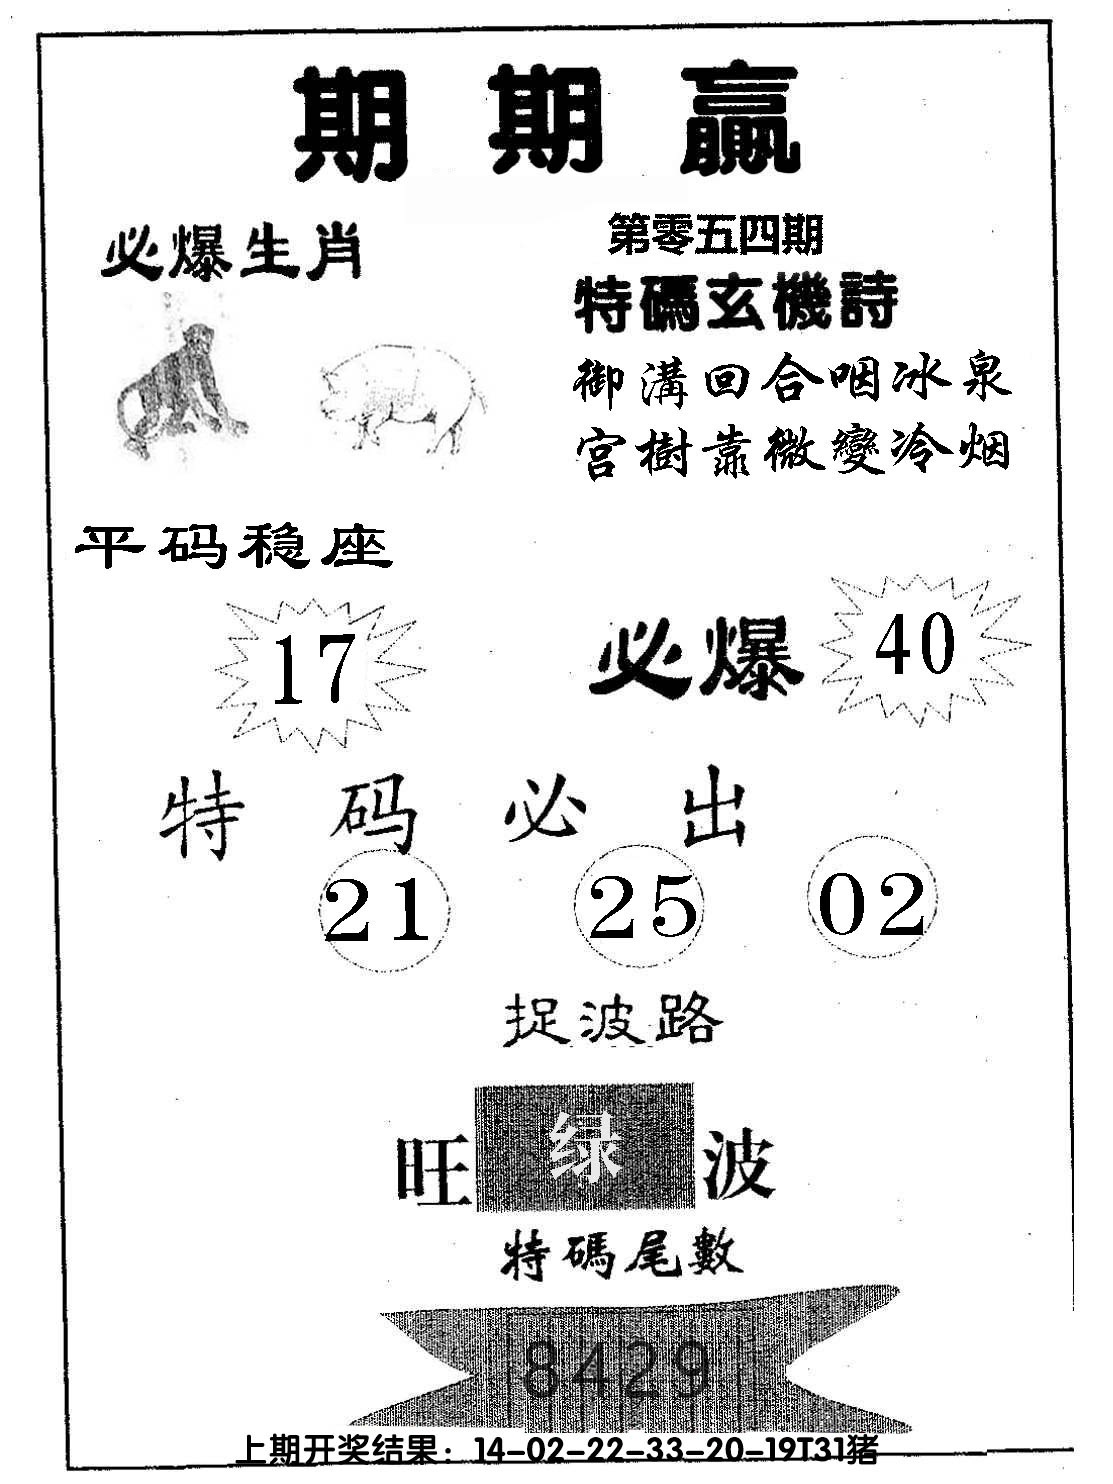 期期赢
必爆生肖
第零五四期
特碼玄機詩
御溝回合咽冰泉
宫樹靠微變冷烟
平码稳座
17
必爆
40
特码必出
21 25 02
捉波路
旺绿波
特碼尾數
8429
上期开奖结果：14-02-22-33-20-19T31猪